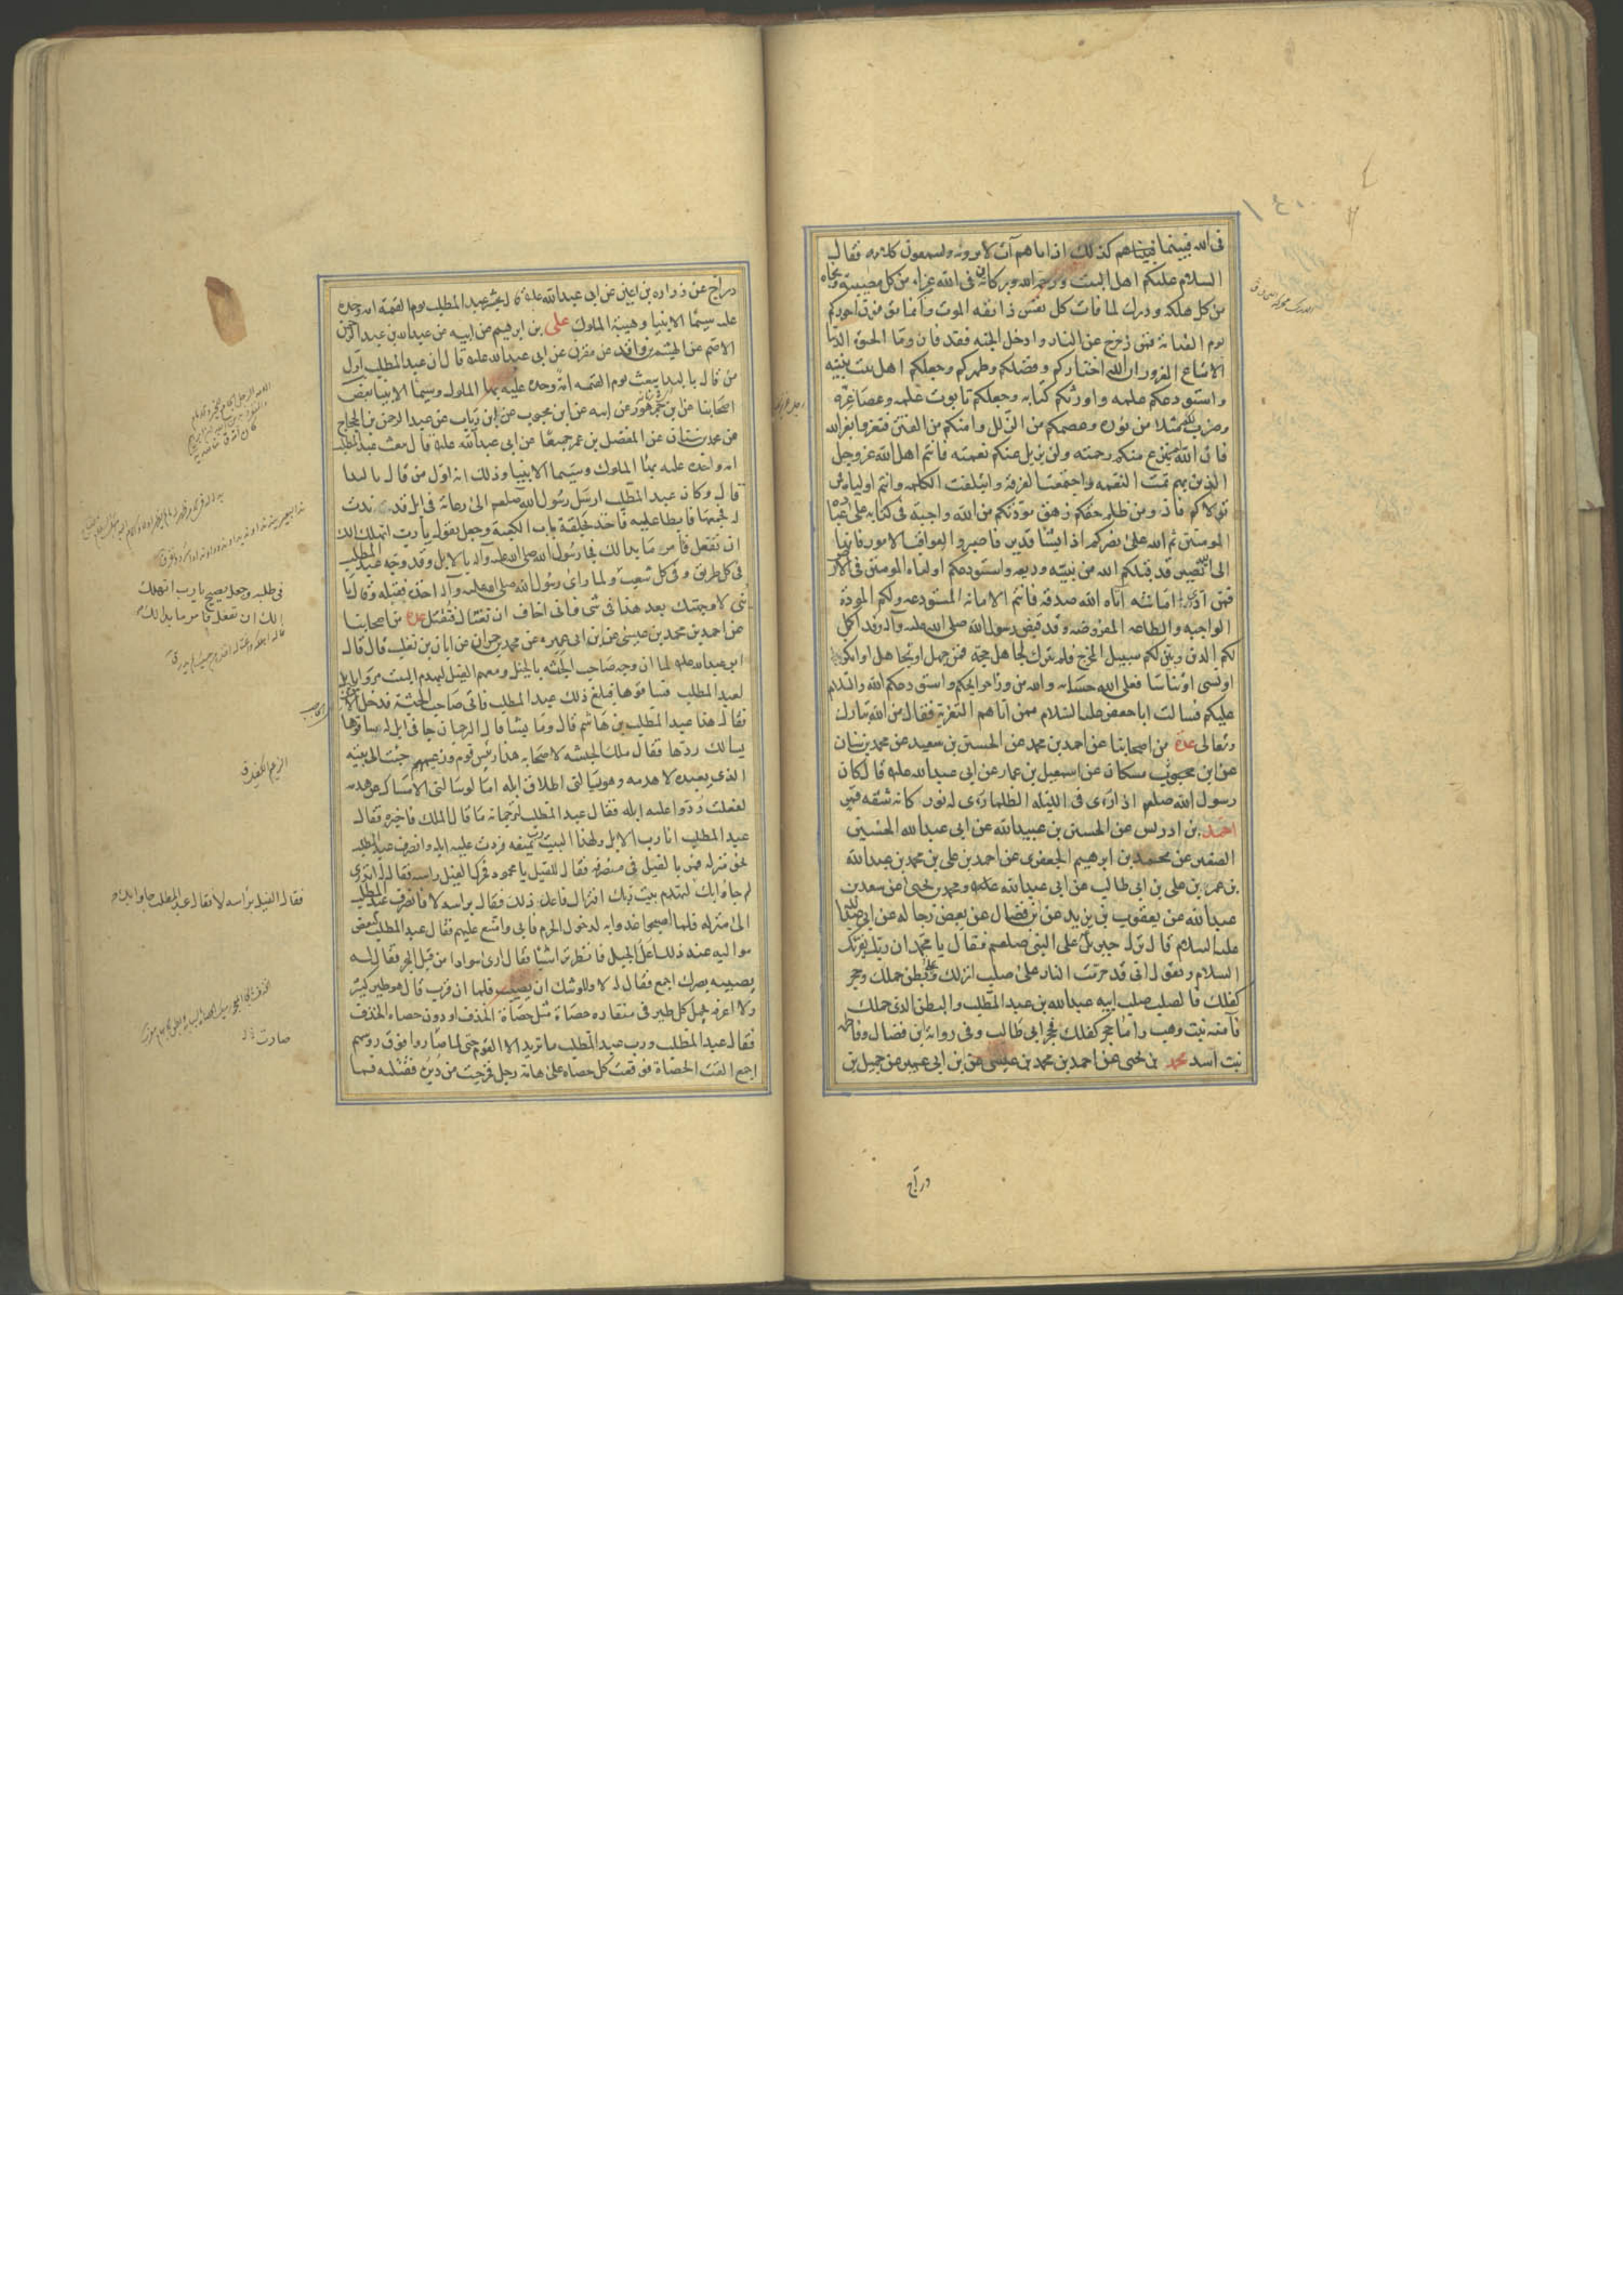 فى الله فبينما هم كذلك اذ اتاهم آت لا يرونه ويسمعون كلامه فقال
السلام عليكم اهل البيت ورحمة الله وبركاته فى الله عزاء من كل مصيبة ونجاه
من كل هلكه ودرك لما فات كل نفس ذائقه الموت وانما توفون اجوركم
يوم القيامة فمن زحزح عن النار وادخل الجنه فقد فاز وما الحيوة الدنيا
الا متاع الغرور ان الله اختاركم وفضلكم وطهركم وجعلكم اهل بيت نبيه
واستودعكم علمه واورثكم كتابه وجعلكم تابوت علمه وعصا عزه
وضرب لكم مثلا من نوره وعصمكم من الزلل وامنكم من الفتن فتعزوا بعزاء الله
فان الله لم ينزع منكم رحمته ولن يزيل عنكم نعمته فانتم اهل الله عز وجل
الذين بهم تمت النعمه واجتمعت الفرقة وائتلفت الكلمه وانتم اولياءه فمن
تولاكم فاز ومن ظلم حقكم زهق مودتكم من الله واجبة فى كتابه على عباده
المومنين ثم الله على نصركم اذا يشا قدير فاصبروا لعواقب الامور فانها
الى الله تصير قد قبلكم الله من نبيه وديعه واستودعكم اولياءه المومنين فى الارض
فمن ادى امانته اتاه الله صدقه فانتم الامانة المستودعه ولكم المودة
الواجبه والطاعه المفروضه وقد قبض رسول الله صلى الله عليه وآله وقد اكمل
لكم الدين وبين لكم سبيل المخرج فلم يترك لجاهل حجة فمن جهل او تجاهل او انكر
او نسى او تناسا فعلى الله حسابه والله من وراء حوائجكم واستودعكم الله والسلام
عليكم فسالت ابا جعفر عليه السلام ممن اتاهم التعزية فقال من الله تبارك
وتعالى عدة من اصحابنا عن احمد بن محمد عن الحسين بن سعيد عن محمد بن سنان
عن ابن مسكان عن اسمعيل بن عمار عن ابى عبدالله عليه قال كان
رسول الله صلعم اذا رءى فى الليله الظلماء رءى له نور كانه شقه قمر
احمد بن ادريس عن الحسين بن عبيدالله عن ابى عبدالله الحسين
الصغير عن محمد بن ابرهيم الجعفرى عن احمد بن على بن محمد بن عبدالله
بن عمر بن على بن ابى طالب عن ابى عبدالله عليه ومحمد بن يحيى عن سعد بن
عبدالله عن يعقوب بن يزيد عن ابن فضال عن بعض رجاله عن ابى عبدالله
عليه السلام قال نزل جبرئيل على النبى صلعم فقال يا محمد ان ربك يقرئك
السلام ويقول انى قد حرمت النار على صلب انزلك وبطن حملك وحجر
كفلك فالصلب صلب ابيه عبدالله بن عبد المطلب والبطن الذى حملك
فآمنه بنت وهب واما حجر كفلك فحجر ابى طالب وفى رواية ابن فضال وفاطمه
بنت اسد محمد بن يحيى عن احمد بن محمد بن عيسى عن ابن ابى عمير عن جميل بن
دراج
دراج عن زراره بن اعين عن ابى عبدالله عليه قال يحشر عبد المطلب يوم القيمة امه وحده
عليه سيما الانبيا وهيبة الملوك على بن ابرهيم عن ابيه عن عبدالله بن عبد الرحمن
الاصم عن الهيثم بن واقد عن مقرن عن ابى عبدالله عليه قال ان عبد المطلب اول
من قال بالبدا يبعث يوم القيمه امة وحده عليه بهاء الملوك وسيما الانبيا بعض
اصحابنا عن ابن جمهور عن ابيه عن ابن محبوب عن ابن رياب عن عبد الرحمن بن الحجاج
عن محمد بن سنان عن المفضل بن عمر جميعا عن ابى عبدالله عليه قال يبعث عبد المطلب
امه واحده عليه بهاء الملوك وسيما الانبيا وذلك انه اول من قال بالبدا
قال وكان عبد المطلب ارسل رسول الله صلعم الى رعاته فى ابل قد ندت
له فجمعها فابطا عليه فاخذ بحلقة باب الكعبة وجعل يقول يا رب اتهلك الك
ان تفعل فامر ما بدا لك فجا رسول الله صلى الله عليه وآله بالابل وقد وجه عبد المطلب
فى كل طريق وفى كل شعب ولما راى رسول الله صلى الله عليه وآله اخذه فقبله وقال يا
بنى لا وجهتك بعد هذا فى شى فانى اخاف ان تغتال فتقتل عدة من اصحابنا
عن احمد بن محمد بن عيسى عن ابن ابى عمير عن محمد بن حمران عن ابان بن تغلب قال قال
ابو عبدالله عليه لما ان وجه صاحب الحبشه بالخيل ومعهم الفيل ليهدم البيت مروا بابل
لعبد المطلب فساقوها فبلغ ذلك عبد المطلب فاتى صاحب الحبشة فدخل الاذن
فقال هذا عبد المطلب بن هاشم قال وما يشا قال الترجمان جا فى ابل له ساقوها
يسالك ردها فقال ملك الحبشه لاصحابه هذا رئيس قوم وزعيمهم جئت الى بيته
الذى يعبده لاهدمه وهو يسالنى اطلاق ابله اما لو سالنى الامساك عن هدمه
لفعلت ردوا عليه ابله فقال عبد المطلب لترجمانه ما قال الملك فاخبره فقال
عبد المطلب انا رب الابل ولهذا البيت رب يمنعه فردت عليه ابله وانصرف عبد المطلب
نحو منزله فمر بالفيل فى منصرفه فقال للفيل يا محمود فحرك الفيل راسه فقال له اتدرى
لم جاوا بك لتهدم بيت ربك افتراك فاعل ذلك فقال براسه لا فانصرف عبد المطلب
الى منزله فلما اصبحوا غدوا به لدخول الحرم فابى وامتنع عليهم فقال عبد المطلب لبعض
مواليه عند ذلك اعل الجبل فانظر ترى شيئا فقال ارى سوادا من قبل البحر فقال له
يصيبه بصرك اجمع فقال له لا ولاوشك ان يصيب فلما ان قرب قال هو طير كثير
ولا اعرفه يحمل كل طير فى منقاره حصاة مثل حصاة الخذف او دون حصاه الخذف
فقال عبد المطلب ورب عبد المطلب ما تريد الا القوم حتى لما صاروا فوق روسهم
اجمع القت الحصاة فوقعت كل حصاه على هامة رجل فخرجت من دبره فقتلته فما
فى طلبه وجعل يصيح يا رب اتهلك
الك ان تفعل فامر ما بدا لك
فقال الفيل براسه لا فقال عبد المطلب جاوا بك